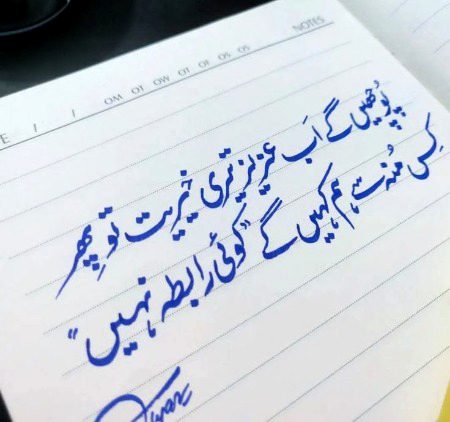 NOTES
E / / OM OT OW OT OF OS OS
پُوچھیں گے اَب عزیز تری خیریت تو پِھر
کِس مُنہ سے ہم کہیں گے "کوئی رابطہ نہیں"